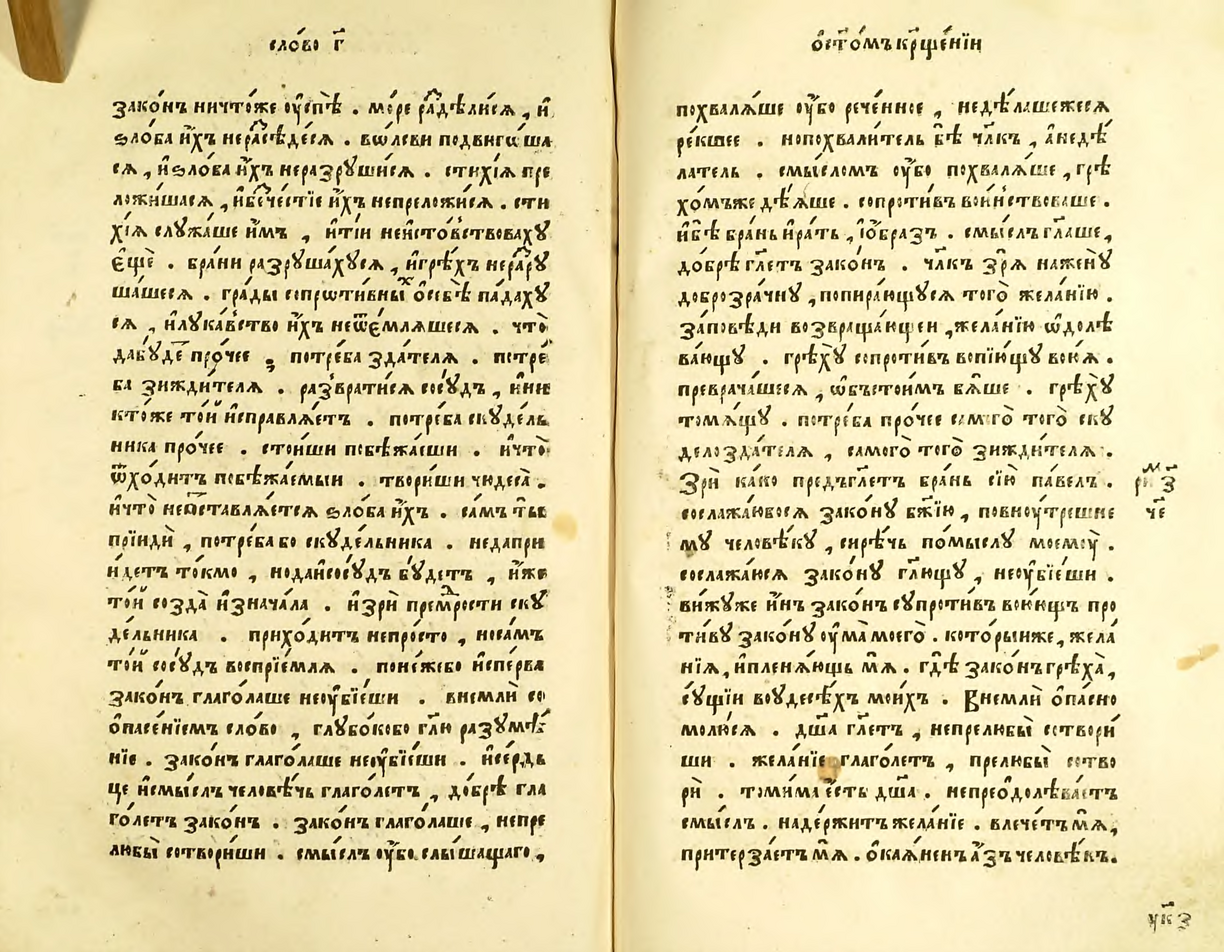 сло́во г҃
зако́нъ ничто́же ᲂу҆спѣ̀ . мо́ре ра́здѣлисѧ , и҆
ѕло́ба и҆́хъ нера́сѣ́десѧ . вѡлсви подвигѡ́ша
сѧ , и҆ѕло́ба и҆́хъ неразрꙋши́сѧ . стихі́ѧ пре
ложи́шасѧ , и҆бече́стїе и҆́хъ непреложи́сѧ . сти
хі́ѧ слꙋжа́ше и҆̀мъ , и҆ті́и неи́стовствовахꙋ
є҆щѐ . бра́ни разрꙋша́хꙋсѧ , и҆грѣ́хъ нера́зрꙋ
ша́шесѧ . гра́ды сопрѡти́вныⷯ ѻ҆себѣ̀ па́дахꙋ
сѧ , и҆лꙋка́вство и҆́хъ неѿє́млѧшесѧ . что̀
дабꙋ́де про́чее , потре́ба зда́телѧ . потре́
ба зижди́телѧ . разврати́сѧ сосꙋ́дъ , и҆ни
кто́же то́й и҆справлѧ́етъ . потре́ба скꙋде́ль
ника про́чее . стои́ши побѣжа́еши . и҆что̀
ѿхо́дитъ побѣжа́емыи . твори́ши чюдеса̀ .
и҆что̀ неѡ҆ставлѧ́етсѧ ѕло́ба и҆́хъ . са́мъ ты̀
прїиди̂ , потре́ба бо скꙋде́льника . неда́при
и́детъ то́кмо , нода́исосꙋ́дъ бꙋ́детъ , и҆́же
то́й созда̀ и҆знача́ла . и҆зри̂ премⷣрости скꙋ
де́льника . прихо́дитъ непро́сто , носа́мъ
то́й сосꙋ́дъ воспрїе́млѧ . поне́жебо и҆спе́рва
зако́нъ глаго́лаше неᲂу҆бїе́ши . внемли̂ со
ѻ҆пасе́нїемъ сло́во , глꙋбо́кобо гл҃ю разꙋмѣ́
нїе . зако́нъ глаго́лаше неᲂу҆бїе́ши . и҆се́рдъ
це и҆смы́слъ человѣ́чь глаго́летъ , до́брѣ гла
го́летъ зако́нъ . зако́нъ глаго́лаше , непре
любы̀ сотвори́ши . смы́слъ ᲂу҆̀бо слы́шащаго ,
ѻ҆ст҃о́мъ крⷭ҇ще́нїи
похвалѧ́ше ᲂу҆̀бо рече́нное , недѣ́лашежесѧ
ре́кшее . нопохвали́тель бѣ̀ чл҃къ , а҆недѣ́
латель . смы́сломъ ᲂу҆̀бо похвалѧ́ше , грѣ
хо́мъже дѣ́ѧше . сопроти́въ вои́нствоваше .
и҆бѣ̀ бра́нь и҆ра́ть , і҆ѻ́бразъ . смы́слъ гл҃аше ,
до́брѣ гл҃етъ зако́нъ . чл҃къ зрѧ̀ наженꙋ̀
доброзра́чнꙋ , попира́ющꙋсѧ того̀ жела́нїю .
за́повѣди возвраща́ющеи , жела́нїю ѡ҆долѣ
ва́ющꙋ . грѣхꙋ̀ сопроти́въ вопїю́щꙋ воюѧ .
превраща́шесѧ , ѡ҆бъстои́мъ бѧ́ше . грѣхꙋ̀
томѧ́щꙋ . потре́ба про́чее самого̀ того̀ скꙋ
делозда́телѧ , самого̀ того̀ зижди́телѧ .
Зри̂ ка́ко предъгл҃етъ бра́нь сїю̀ па́велъ .
сослажа́ювосѧ зако́нꙋ бж҃їю , повнꙋ́трешне
мꙋ человѣ́кꙋ , сирѣ́чь по́мыслꙋ моемᲂу҆̀ .
сослажа́юсѧ зако́нꙋ гл҃ющꙋ , неᲂу҆бїе́ши .
ви́жꙋже и҆́нъ зако́нъ сꙋпроти́въ вою́ющъ про
ти́вꙋ зако́нꙋ ᲂу҆ма̀ моего̀ . кото́рыиже , жела́
нїѧ , и҆плѣнѧ́ющь мѧ̀ . гдѣ̀ зако́нъ грѣха̀ ,
сꙋ́щїи воꙋдесѣ́хъ мои́хъ . Внемли̂ ѻ҆па́сно
молю́сѧ . дш҃а̀ гл҃етъ , непрелюбы̀ сотвори́
ши . жела́нїе глаго́летъ , прелюбы̀ сотво
ри̂ . томи́ма є҆́сть дш҃а̀ . непреѻ҆долѣва́етъ
смы́слъ . надержи́тъ жела́нїе . влече́тъ мѧ̀ ,
притерза́етъ мѧ̀ . ѻ҆каѧ́ненъ а҆́зъ человѣ́къ .
че
ук҃з